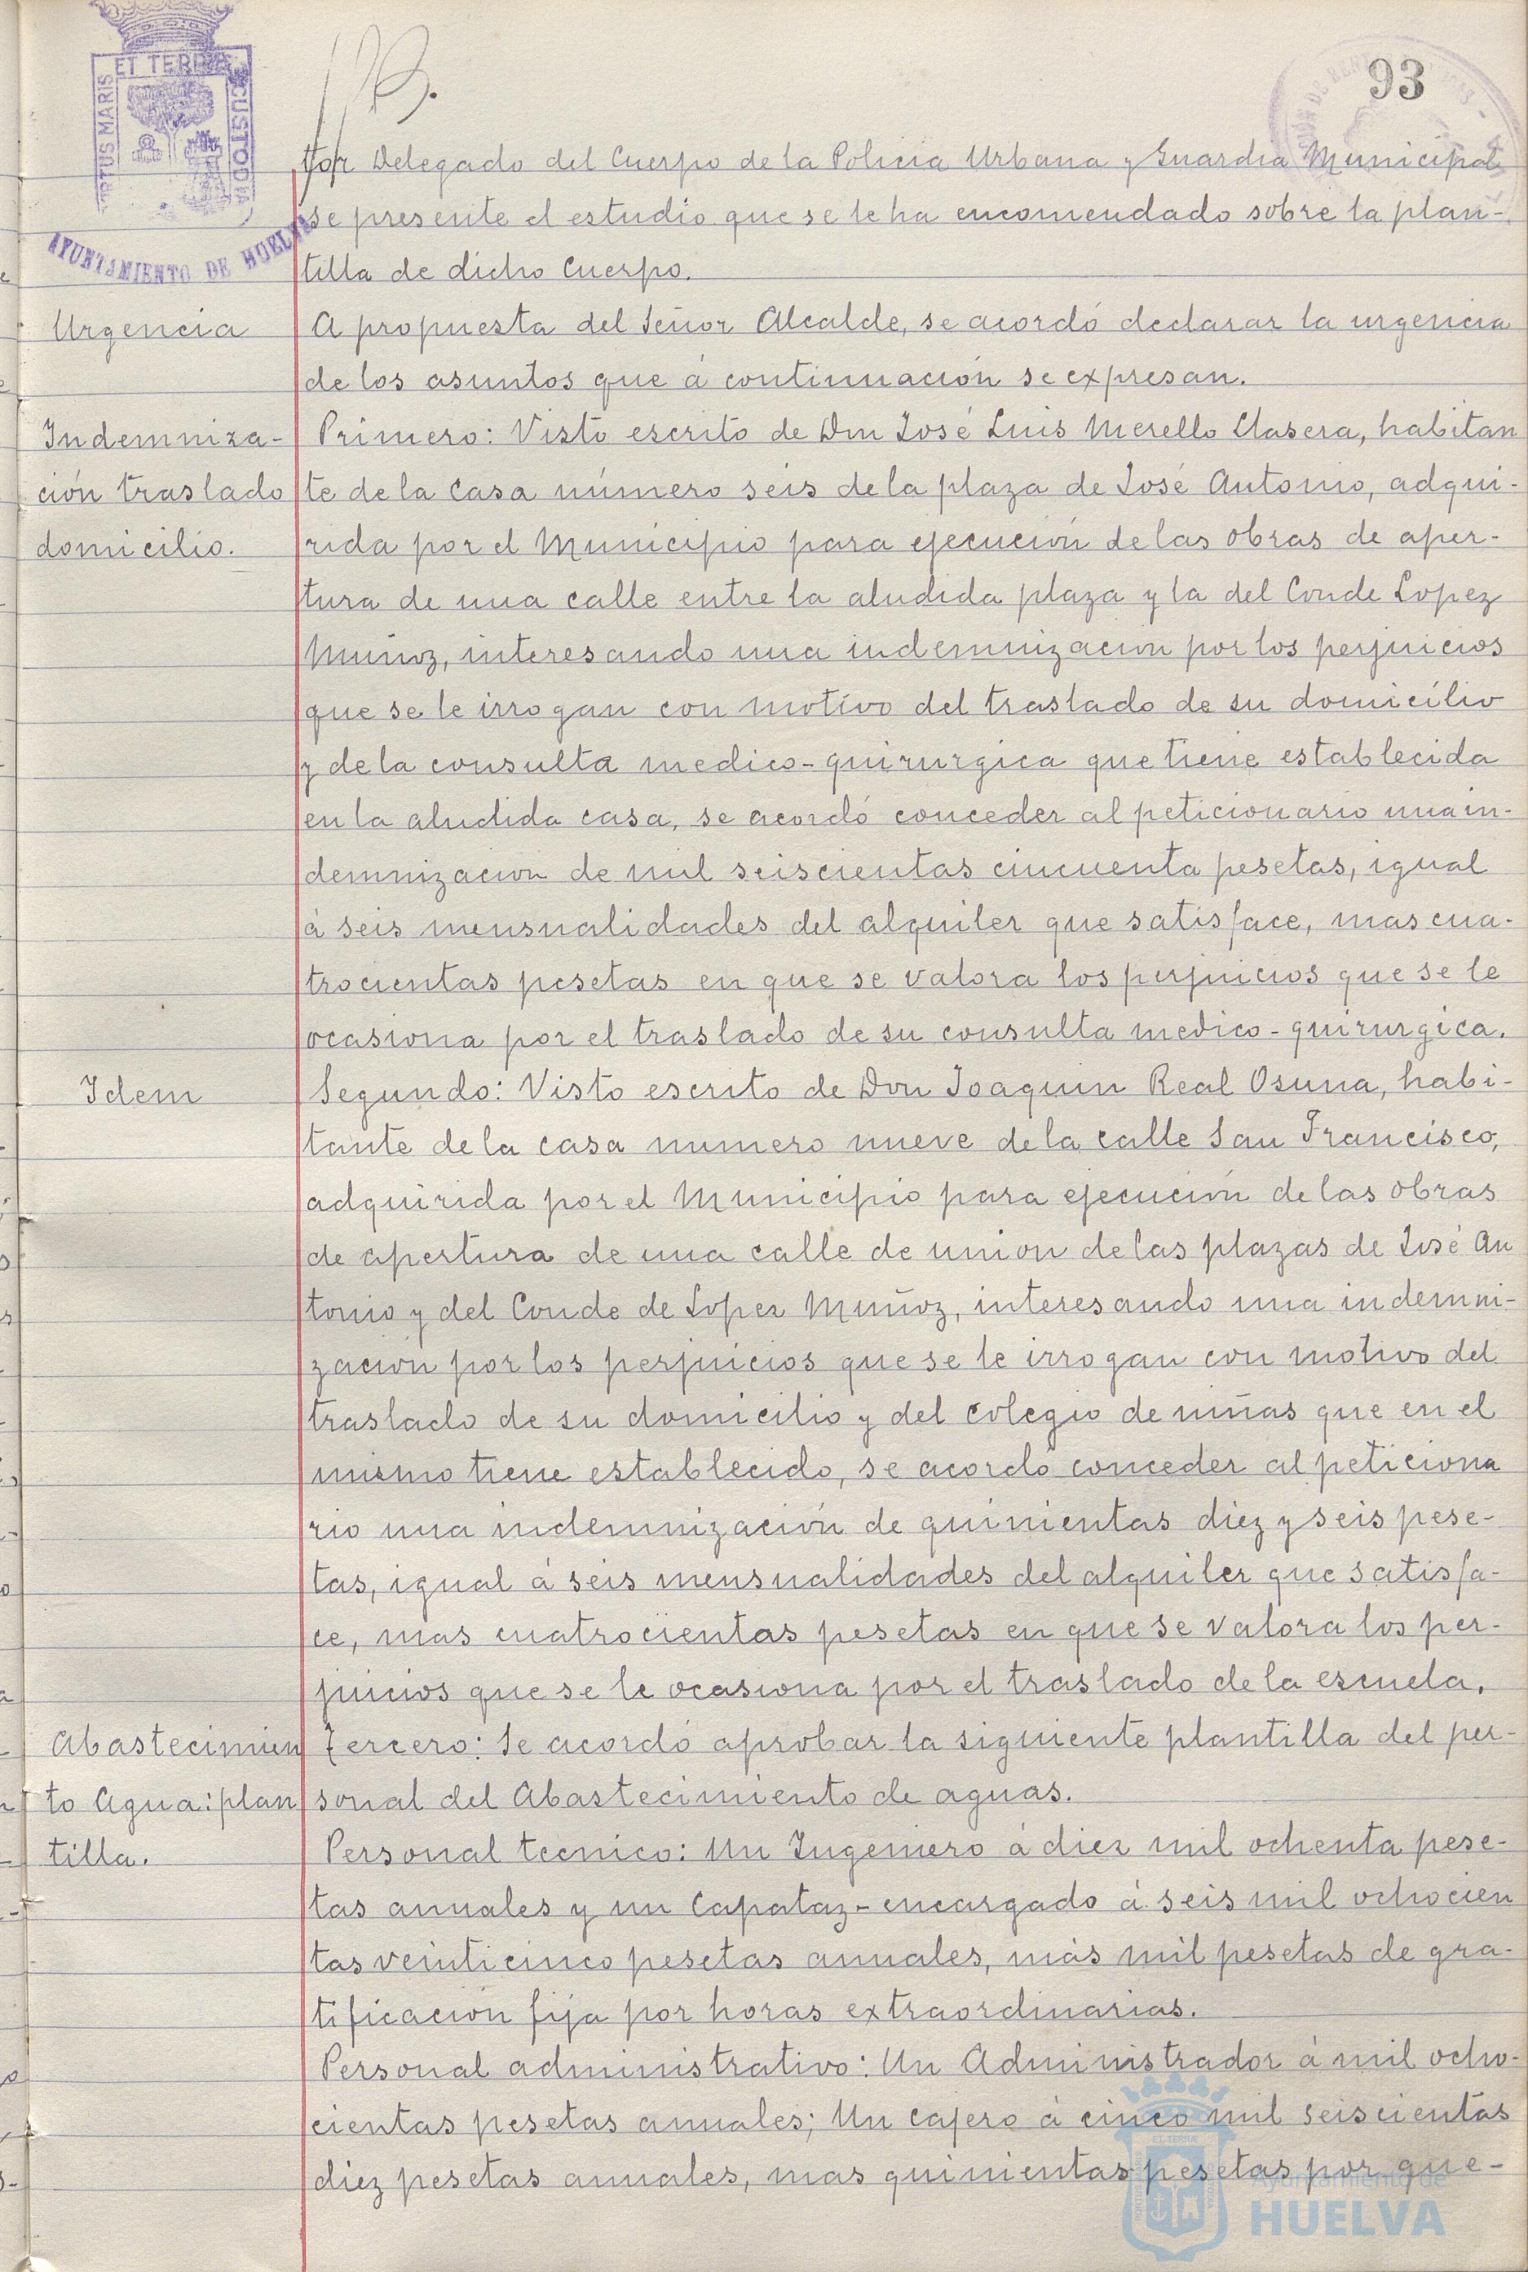 93
ET TERRA
PORTUS MARIS
CUSTODIA
AYUNTAMIENTO DE HUELVA
tor Delegado del Cuerpo de la Policia Urbana y Guardia Municipal
se presente el estudio que se le ha encomendado sobre la plan-
tilla de dicho Cuerpo.
Urgencia
A propuesta del Señor Alcalde, se acordó declarar la urgencia
de los asuntos que á continuación se expresan.
Indemniza-
ción traslado
domicilio.
Primero: Visto escrito de Don José Luis Merello Llasera, habitan
te de la casa número seis de la plaza de José Antonio, adqui-
rida por el Municipio para ejecución de las obras de aper-
tura de una calle entre la aludida plaza y la del Conde Lopez
Muñoz, interesando una indemnizacion por los perjuicios
que se le irrogan con motivo del traslado de su domicilio
y de la consulta medico-quirurgica que tiene establecida
en la aludida casa, se acordó conceder al peticionario una in-
demnizacion de mil seiscientas cincuenta pesetas, igual
á seis mensualidades del alquiler que satisface, mas cua-
trocientas pesetas en que se valora los perjuicios que se le
ocasiona por el traslado de su consulta medico-quirurgica.
Idem
Segundo: Visto escrito de Don Joaquin Real Osuna, habi-
tante de la casa numero nueve de la calle San Francisco,
adquirida por el Municipio para ejecución de las obras
de apertura de una calle de union de las plazas de José An
tonio y del Conde de Lopez Muñoz, interesando una indemni-
zación por los perjuicios que se le irrogan con motivo del
traslado de su domicilio y del colegio de niñas que en el
mismo tiene establecido, se acordó conceder al peticiona
rio una indemnización de quinientas diez y seis pese-
tas, igual á seis mensualidades del alquiler que satisfa-
ce, mas cuatrocientas pesetas en que se valora los per-
juicios que se le ocasiona por el traslado de la escuela.
Abastecimien
to Agua: plan
tilla.
Tercero: Se acordó aprobar la siguiente plantilla del per-
sonal del Abastecimiento de aguas.
Personal tecnico: Un Ingeniero á diez mil ochenta pese-
tas anuales y un Capataz-encargado á seis mil ochocien
tas veinticinco pesetas anuales, más mil pesetas de gra-
tificación fija por horas extraordinarias.
Personal administrativo: Un Administrador á mil ocho-
cientas pesetas anuales; Un cajero á cinco mil seiscientas
diez pesetas anuales, mas quinientas pesetas por que-
Ayuntamiento de
HUELVA